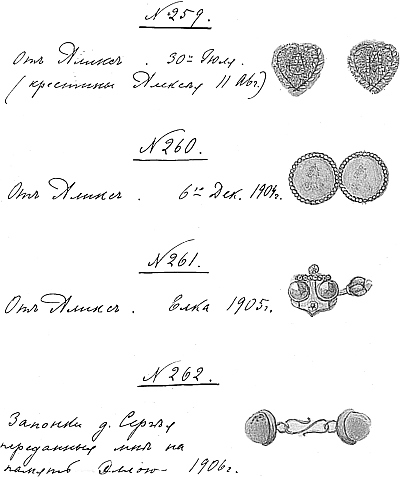 № 259.
Отъ Аликсъ. 30го Іюля.
(крестины Алексѣя 11 Авг.)
№ 260.
Отъ Аликсъ. 6го Дек. 1904г.
№ 261.
Отъ Аликсъ. Елка 1905г.
№ 262.
Запонки д. Сергѣя
переданныя мнѣ на
память Эллою - 1906г.